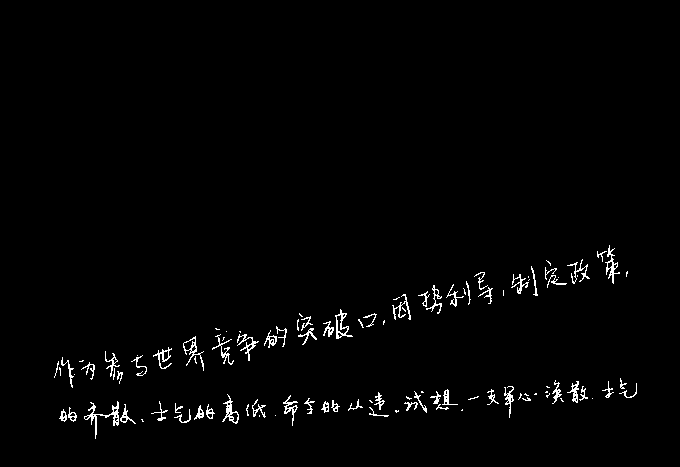 作为参与世界竞争的突破口,因势利导,制定政策,
的齐散、士气的高低、命令的从违。试想,一支军心涣散、士气